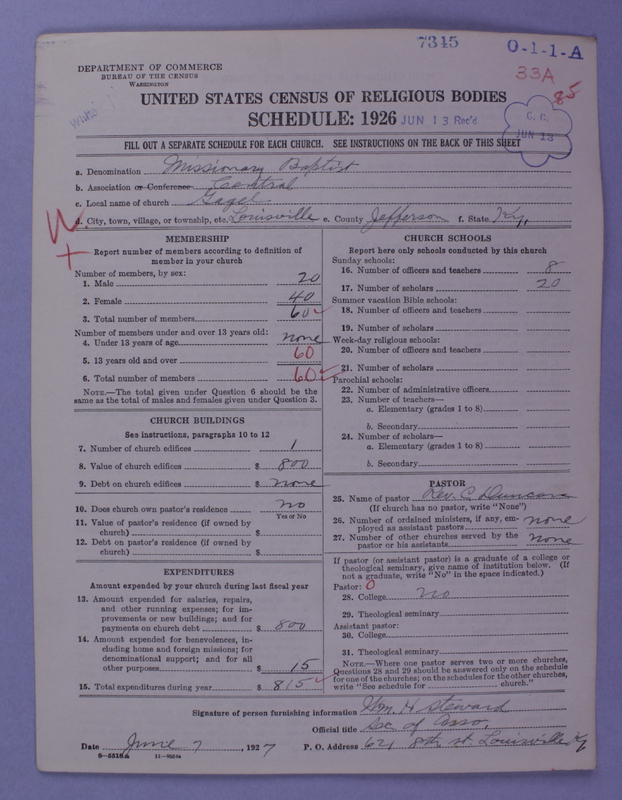 7345
O-1-1-A
33A
85
DEPARTMENT OF COMMERCE
BUREAU OF THE CENSUS
WASHINGTON
UNITED STATES CENSUS OF RELIGIOUS BODIES
SCHEDULE: 1926 JUN 13 Rec'd
C. C.
JUN 13
FILL OUT A SEPARATE SCHEDULE FOR EACH CHURCH. SEE INSTRUCTIONS ON THE BACK OF THIS SHEET
a. Denomination Missionary Baptist
b. Association or Conference Central
c. Local name of church
d. City, town, village, or township, etc. Louisville e. County Jefferson f. State Ky.
MEMBERSHIP
Report number of members according to definition of
member in your church
Number of members, by sex:
1. Male 20
2. Female 40
3. Total number of members 60
Number of members under and over 13 years old:
4. Under 13 years of age none
5. 13 years old and over 60
6. Total number of members 60
NOTE.—The total given under Question 6 should be the
same as the total of males and females given under Question 3.
CHURCH BUILDINGS
See instructions, paragraphs 10 to 12
7. Number of church edifices 1
8. Value of church edifices $ 800
9. Debt on church edifices $ none
10. Does church own pastor's residence? no
Yes or No
11. Value of pastor's residence (if owned by
church) $
12. Debt on pastor's residence (if owned by
church) $
EXPENDITURES
Amount expended by your church during last fiscal year
13. Amount expended for salaries, repairs,
and other running expenses; for im-
provements or new buildings; and for
payments on church debt $ 800
14. Amount expended for benevolences, in-
cluding home and foreign missions; for
denominational support; and for all
other purposes $ 15
15. Total expenditures during year $ 815
CHURCH SCHOOLS
Report here only schools conducted by this church
Sunday schools:
16. Number of officers and teachers 8
17. Number of scholars 20
Summer vacation Bible schools:
18. Number of officers and teachers
19. Number of scholars
Week-day religious schools:
20. Number of officers and teachers
21. Number of scholars
Parochial schools:
22. Number of administrative officers
23. Number of teachers—
a. Elementary (grades 1 to 8)
b. Secondary
24. Number of scholars—
a. Elementary (grades 1 to 8)
b. Secondary
PASTOR
25. Name of pastor Rev. C. Duncan
(If church has no pastor, write "None")
26. Number of ordained ministers, if any, em-
ployed as assistant pastors none
27. Number of other churches served by the
pastor or his assistants none
If pastor (or assistant pastor) is a graduate of a college or
theological seminary, give name of institution below. (If
not a graduate, write "No" in the space indicated.)
Pastor: 0
28. College no
29. Theological seminary
Assistant pastor:
30. College
31. Theological seminary
NOTE.—Where one pastor serves two or more churches,
Questions 28 and 29 should be answered only on the schedule
for one of the churches; on the schedules for the other churches,
write "See schedule for church."
Signature of person furnishing information Wm. H Steward
Official title Sec. of Asso.
Date June 7, 1927 P. O. Address 621 8th st. Louisville Ky
8-5518A 11-9584